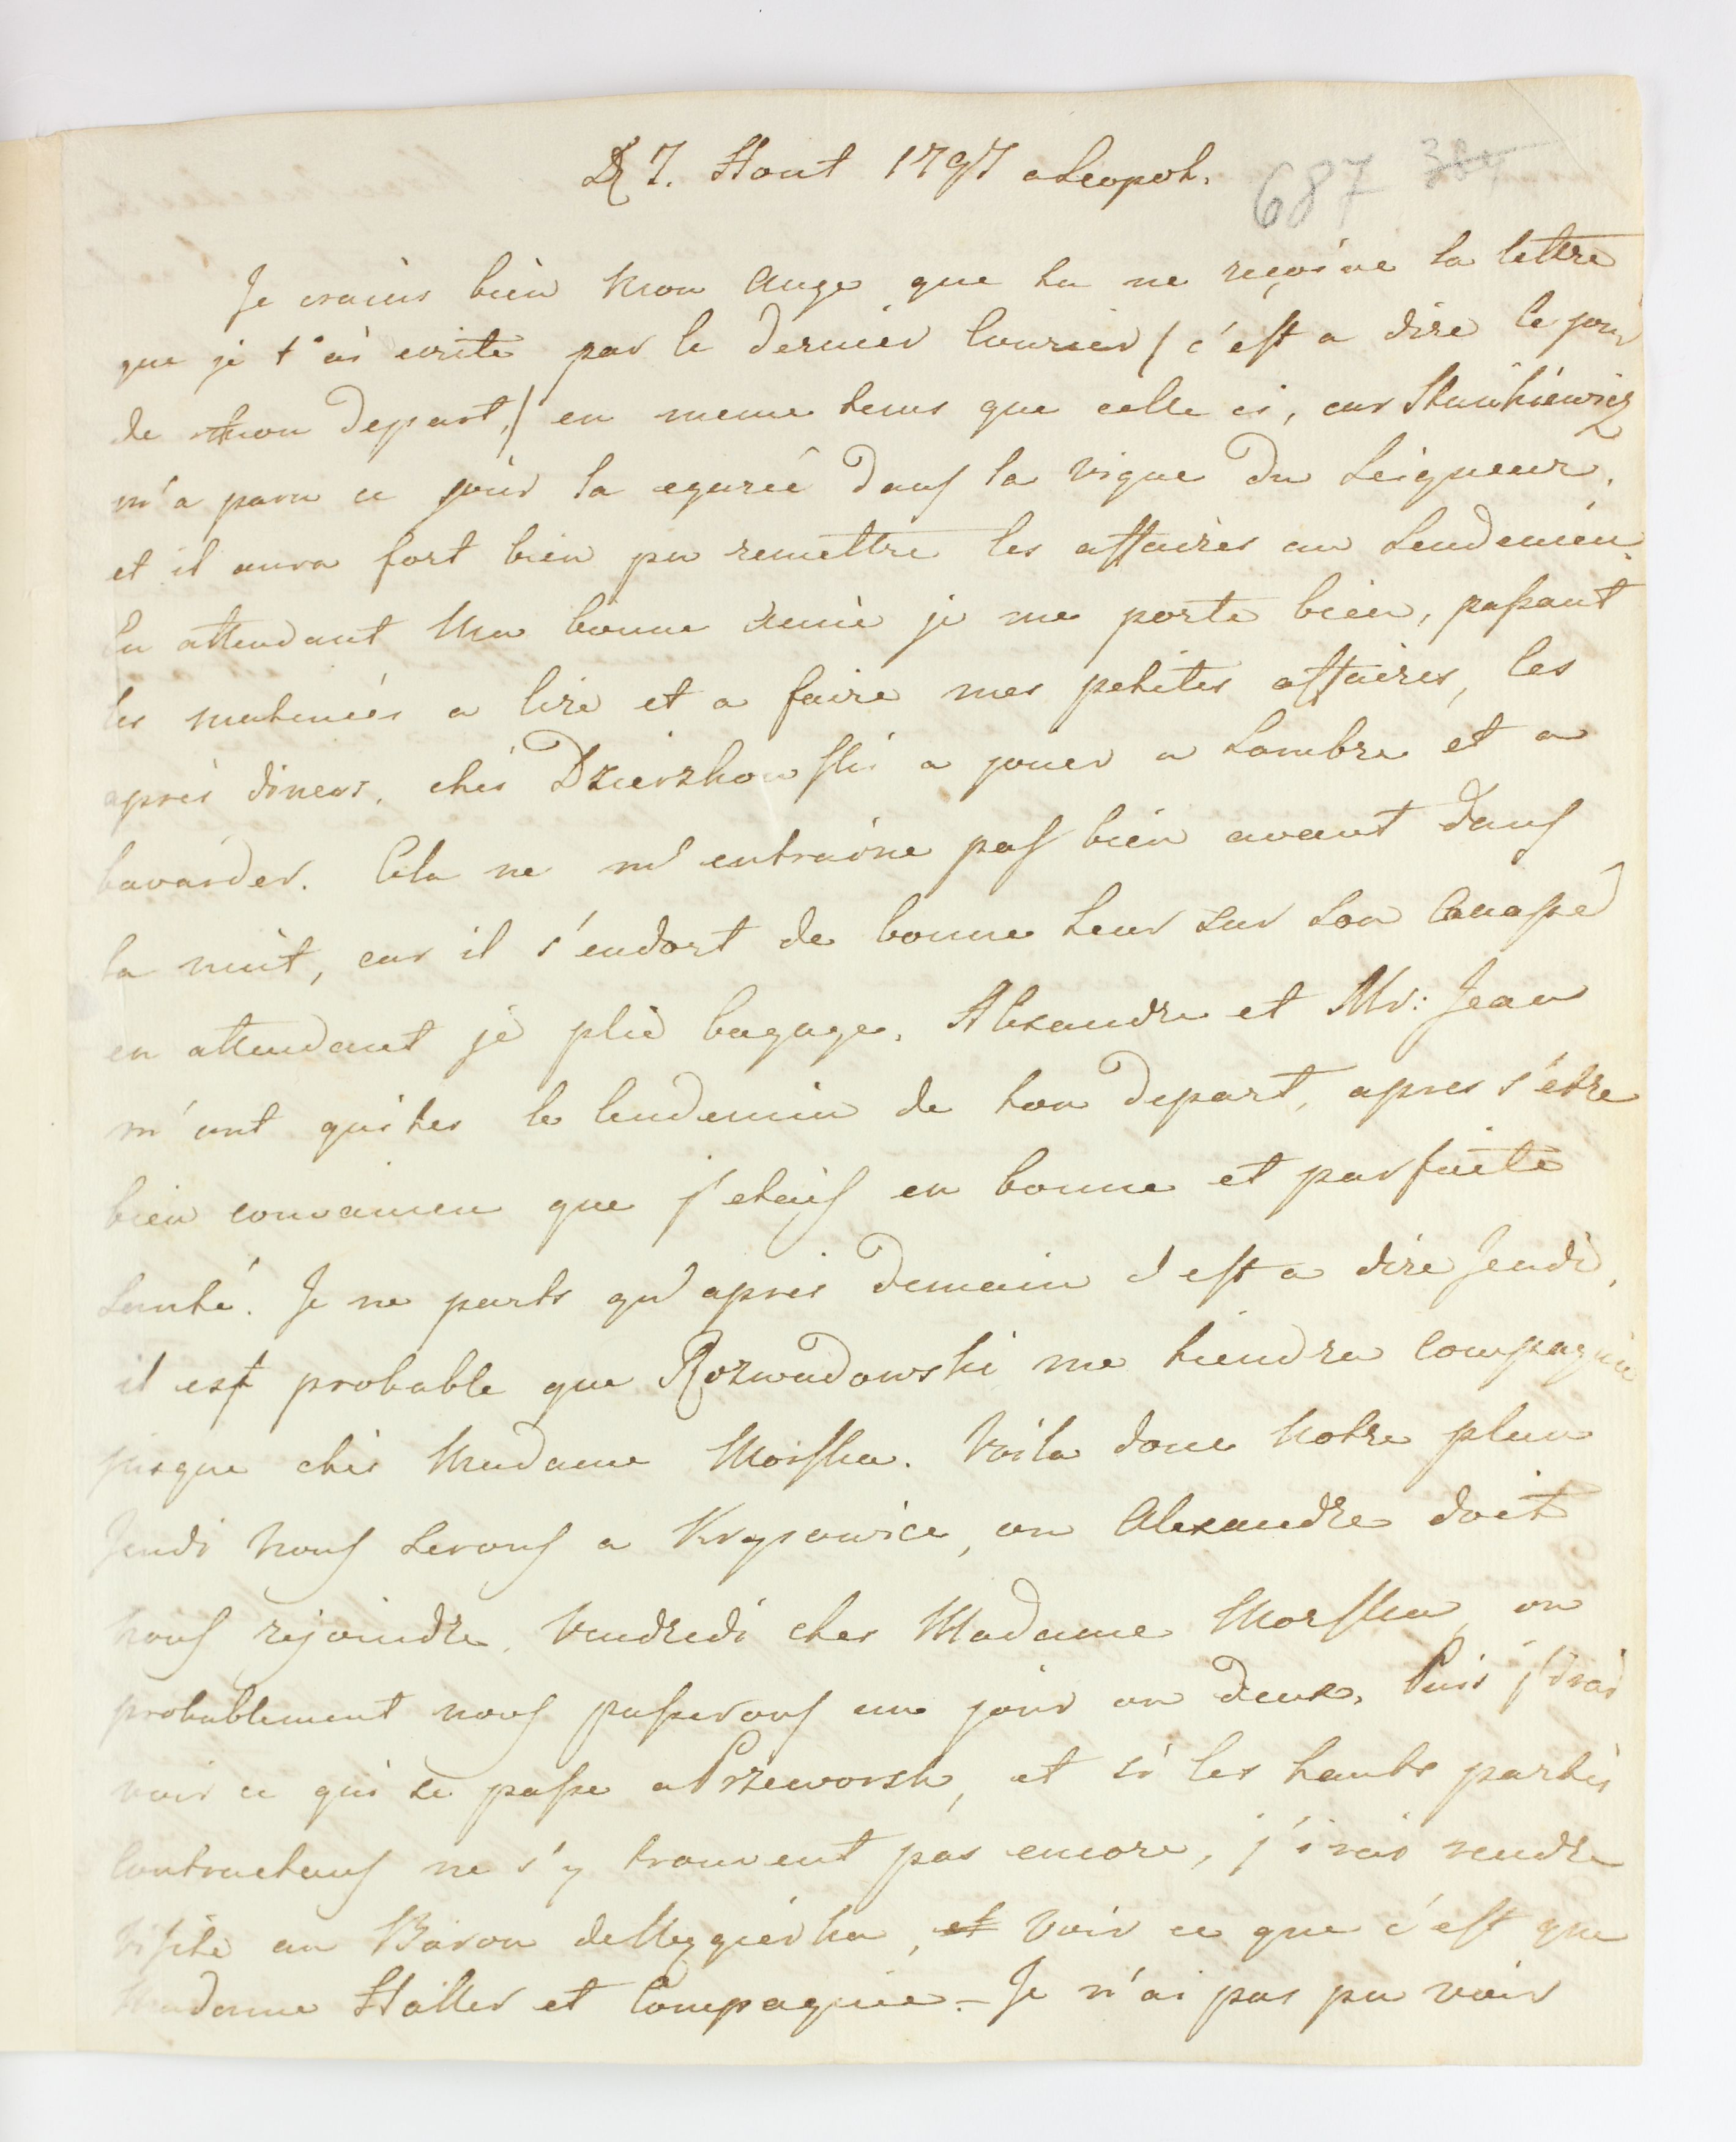 D 7. Aout 1797 a Leopol.
687 384
Je crains bien mon Ange que tu ne reçoive la lettre
que je t'ai ecrite par le dernier Courier / c'est a dire le jour
de ton depart, / en meme tems que celle ci, car Stankiewicz
m'a paru ce jour la egareé dans la vigne du Seigneur,
et il aura fort bien pu remettre les affaires au Lendemein.
En attendant Ma bonne Amie je me porte bien, passant
les matineés a lire et a faire mes petites affaires, les
après diners, chés Dzierzkowski a jouer a Lombre et a
bavarder. Cela ne m'entraine pas bien avant dans
la nuit, car il s'endort de bonne heur sur son Canapé
en attendant je plie bagage. Alexandre et Mr: Jean
m'ont quites le lendemin de ton depart, apres s'étre
bien convaincu que j'etais en bonne et parfaite
Santé. Je ne parts qu'apres demain c'est a dire Jeudi,
il est probable que Rozwadowski me tiendra Compagnie
jusque chés Madame Morska. Voila donc notre plan
Jeudi nous serons a Krysowice, ou Alexandre doit
nous rejoindre, Vendredi ches Madame Morska, ou
probablement nous passerons un jour ou deux, Puis j'irai
voir ce qui se passe a Przeworsk, et si les hauts partis
Contractans ne s'y trouvent pas encore, j'irais rendre
visite au Baron de Meggierka, et voir ce que c'est que
Madame Haller et Compagnie. – Je n'ai pas pu voir